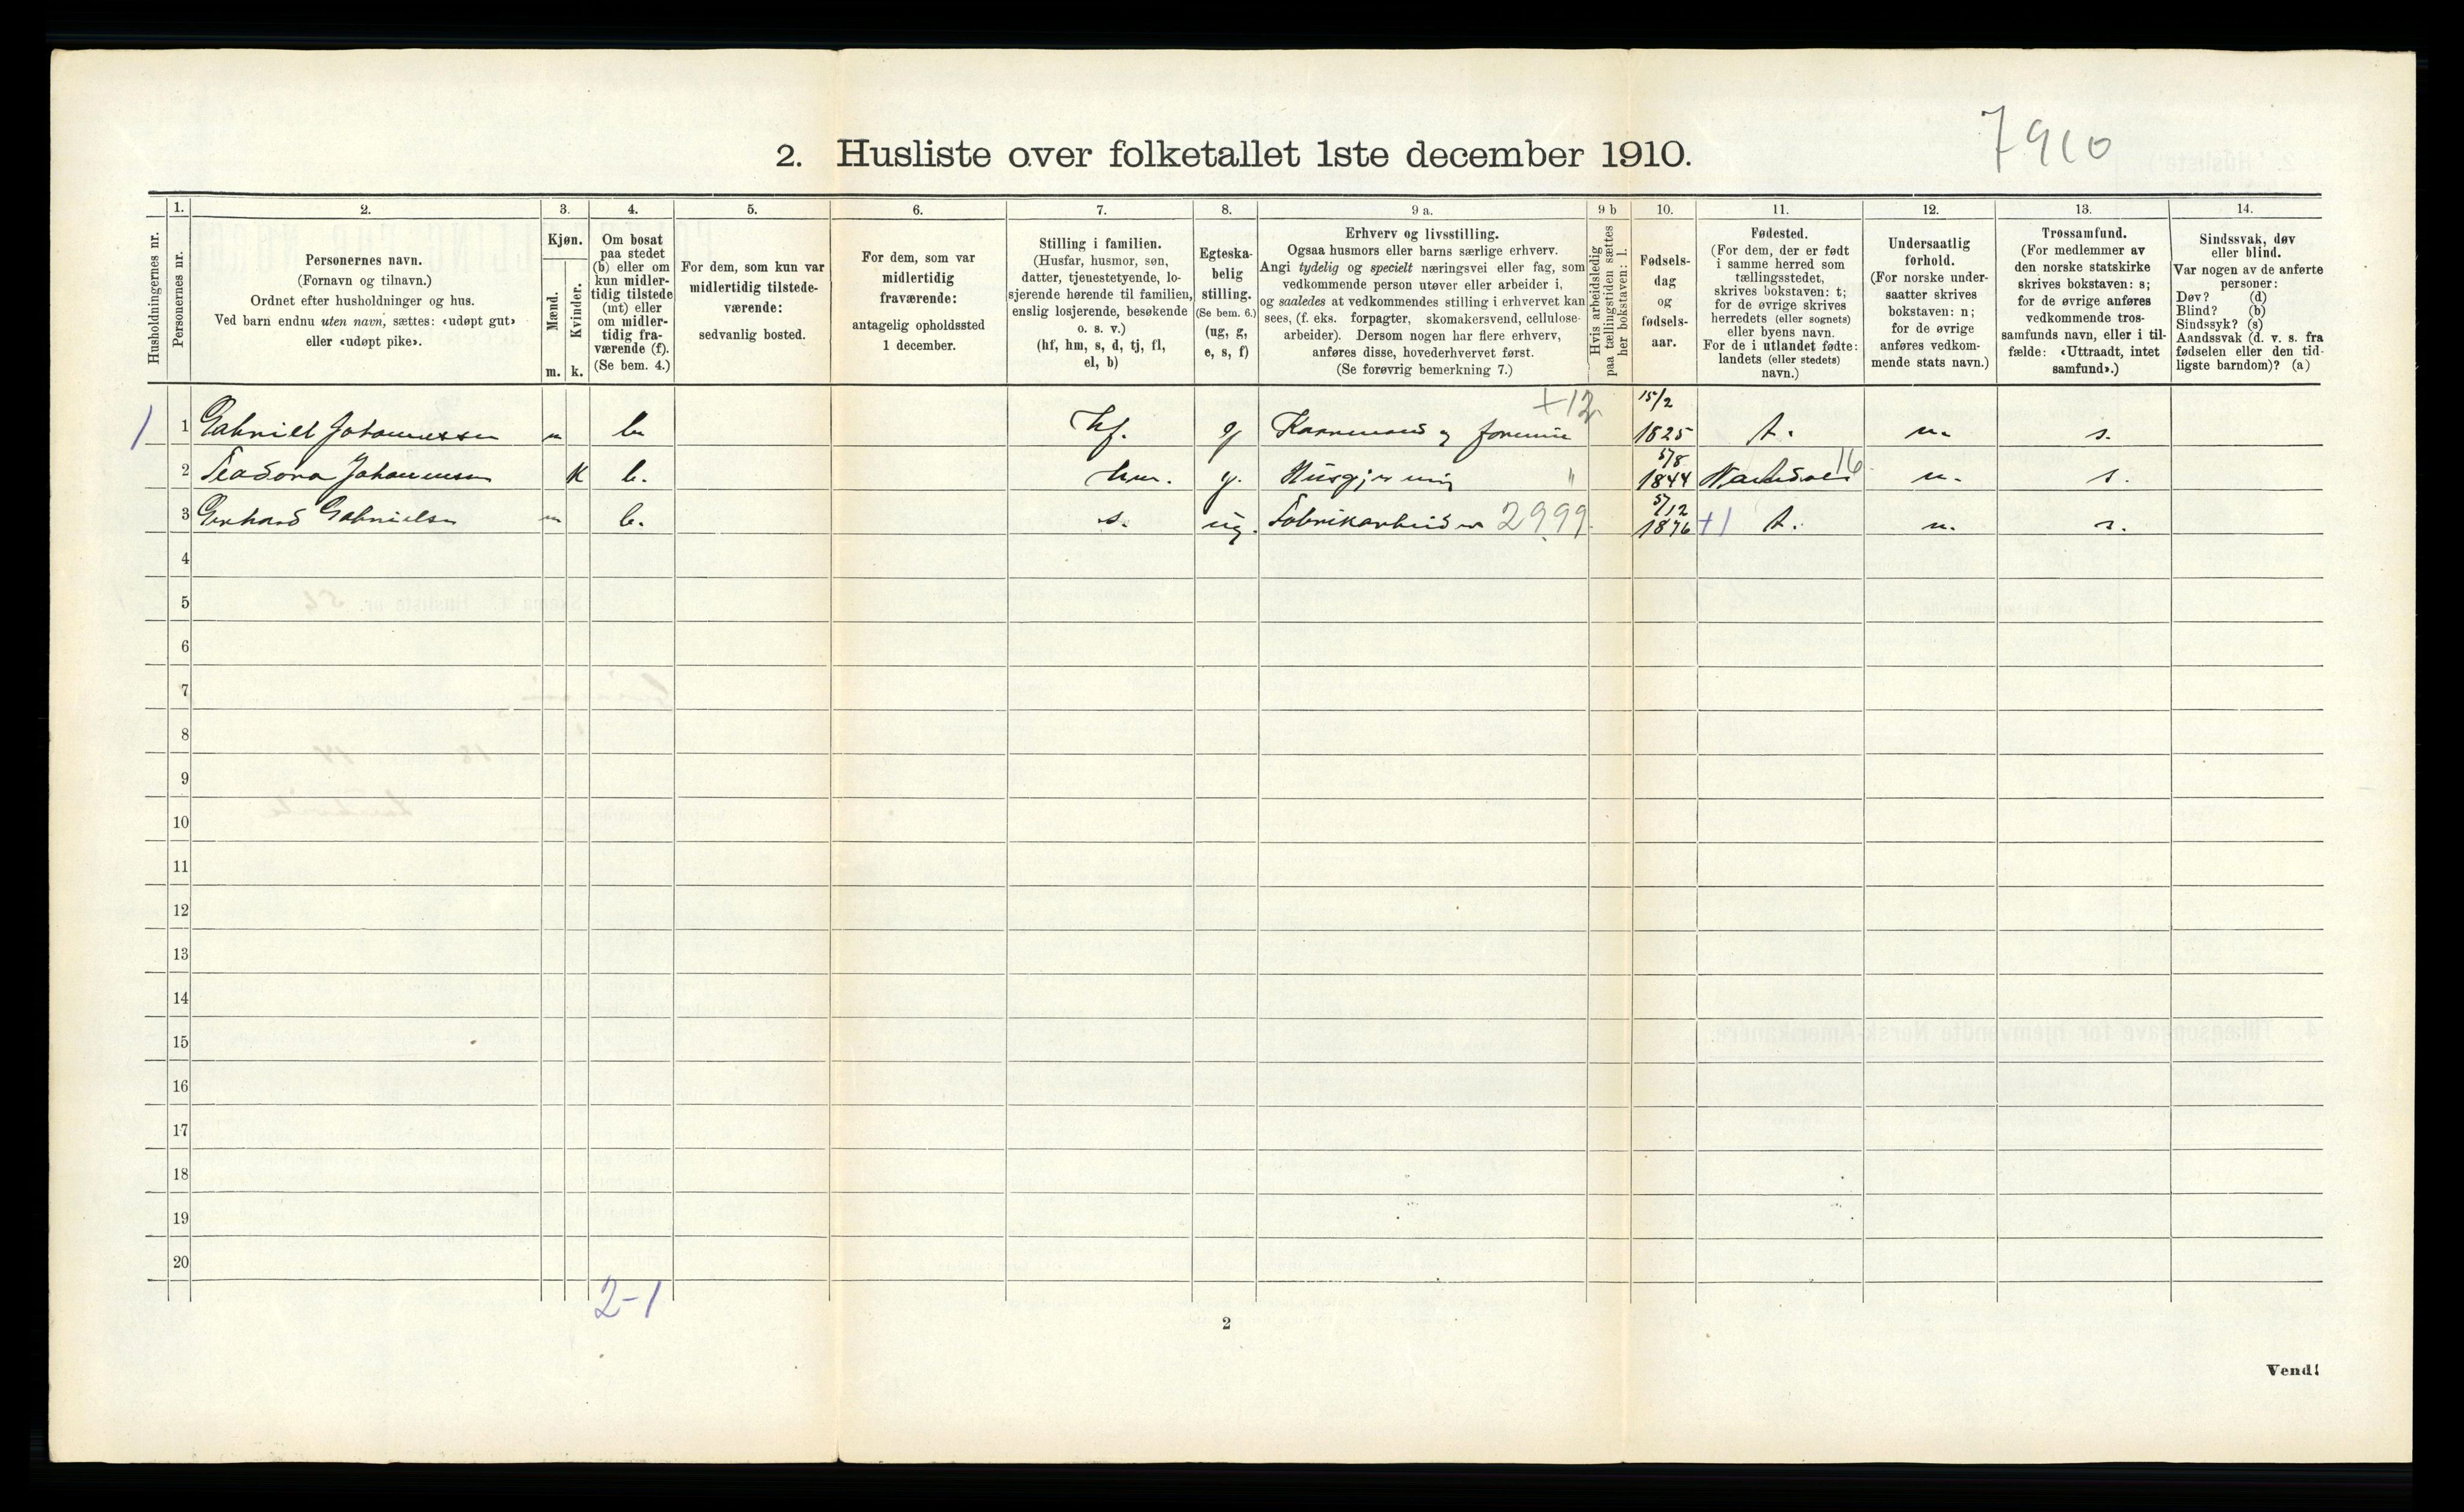 7910
2. Husliste over folketallet 1ste december 1910.
Husholdningernes nr.
1.
Personernes nr.
2.
Personernes navn.
(Fornavn og tilnavn.)
Ordnet efter husholdninger og hus.
Ved barn endnu uten navn, sættes: «udøpt gut»
eller «udøpt pike».
3.
Kjøn.
Mænd.
Kvinder.
m. k.
4.
Om bosat
paa stedet
(b) eller om
kun midler-
tidig tilstede
(mt) eller
om midler-
tidig fra-
værende (f).
(Se bem. 4.)
5.
For dem, som kun var
midlertidig tilstede-
værende:
sedvanlig bosted.
6.
For dem, som var
midlertidig
fraværende:
antagelig opholdssted
1 december.
7.
Stilling i familien.
(Husfar, husmor, søn,
datter, tjenestetyende, lo-
sjerende hørende til familien,
enslig losjerende, besøkende
o. s. v.)
(hf, hm, s, d, tj, fl,
el, b)
8.
Egteska-
belig
stilling.
(Se bem. 6.)
(ug, g,
e, s, f)
9 a.
Erhverv og livsstilling.
Ogsaa husmors eller barns særlige erhverv.
Angi tydelig og specielt næringsvei eller fag, som
vedkommende person utøver eller arbeider i,
og saaledes at vedkommendes stilling i erhvervet kan
sees, (f. eks. forpagter, skomakersvend, cellulose-
arbeider). Dersom nogen har flere erhverv,
anføres disse, hovederhvervet først.
(Se forøvrig bemerkning 7.)
9 b
Hvis arbeidsledig
paa tællingstiden sættes
her bokstaven: l.
10.
Fødsels-
dag
og
fødsels-
aar.
11.
Fødested.
(For dem, der er født
i samme herred som
tællingsstedet,
skrives bokstaven: t;
for de øvrige skrives
herredets (eller sognets)
eller byens navn.
For de i utlandet fødte:
landets (eller stedets)
navn.)
12.
Undersaatlig
forhold.
(For norske under-
saatter skrives
bokstaven: n;
for de øvrige
anføres vedkom-
mende stats navn.)
13.
Trossamfund.
(For medlemmer av
den norske statskirke
skrives bokstaven: s;
for de øvrige anføres
vedkommende tros-
samfunds navn, eller i til-
fælde: «Uttraadt, intet
samfund».)
14.
Sindssvak, døv
eller blind.
Var nogen av de anførte
personer:
Døv? (d)
Blind? (b)
Sindssyk? (s)
Aandssvak (d. v. s. fra
fødselen eller den tid-
ligste barndom)? (a)
+12 15/2
1 1 Gabriell Johannessen m b. hf. g 1825 t. n. s.
5/8 16
2 Teadora Johannesen K b. hm. g. Husgjerning " 1844 n. s.
5/12
3 Gerhard Gabrielsen m b. s. ug. Fabrikarbeider 2999 1876 +1 t. n. s.
4
5
6
7
8
9
10
11
12
13
14
15
16
17
18
19
20
2-1
2
Vend!